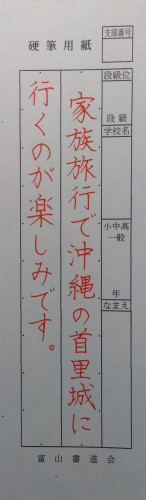 硬筆用紙
支部番号
段級位
段級
学校名
小中高
一般
年
なまえ
家族旅行で沖縄の首里城に
行くのが楽しみです。
富山書道会